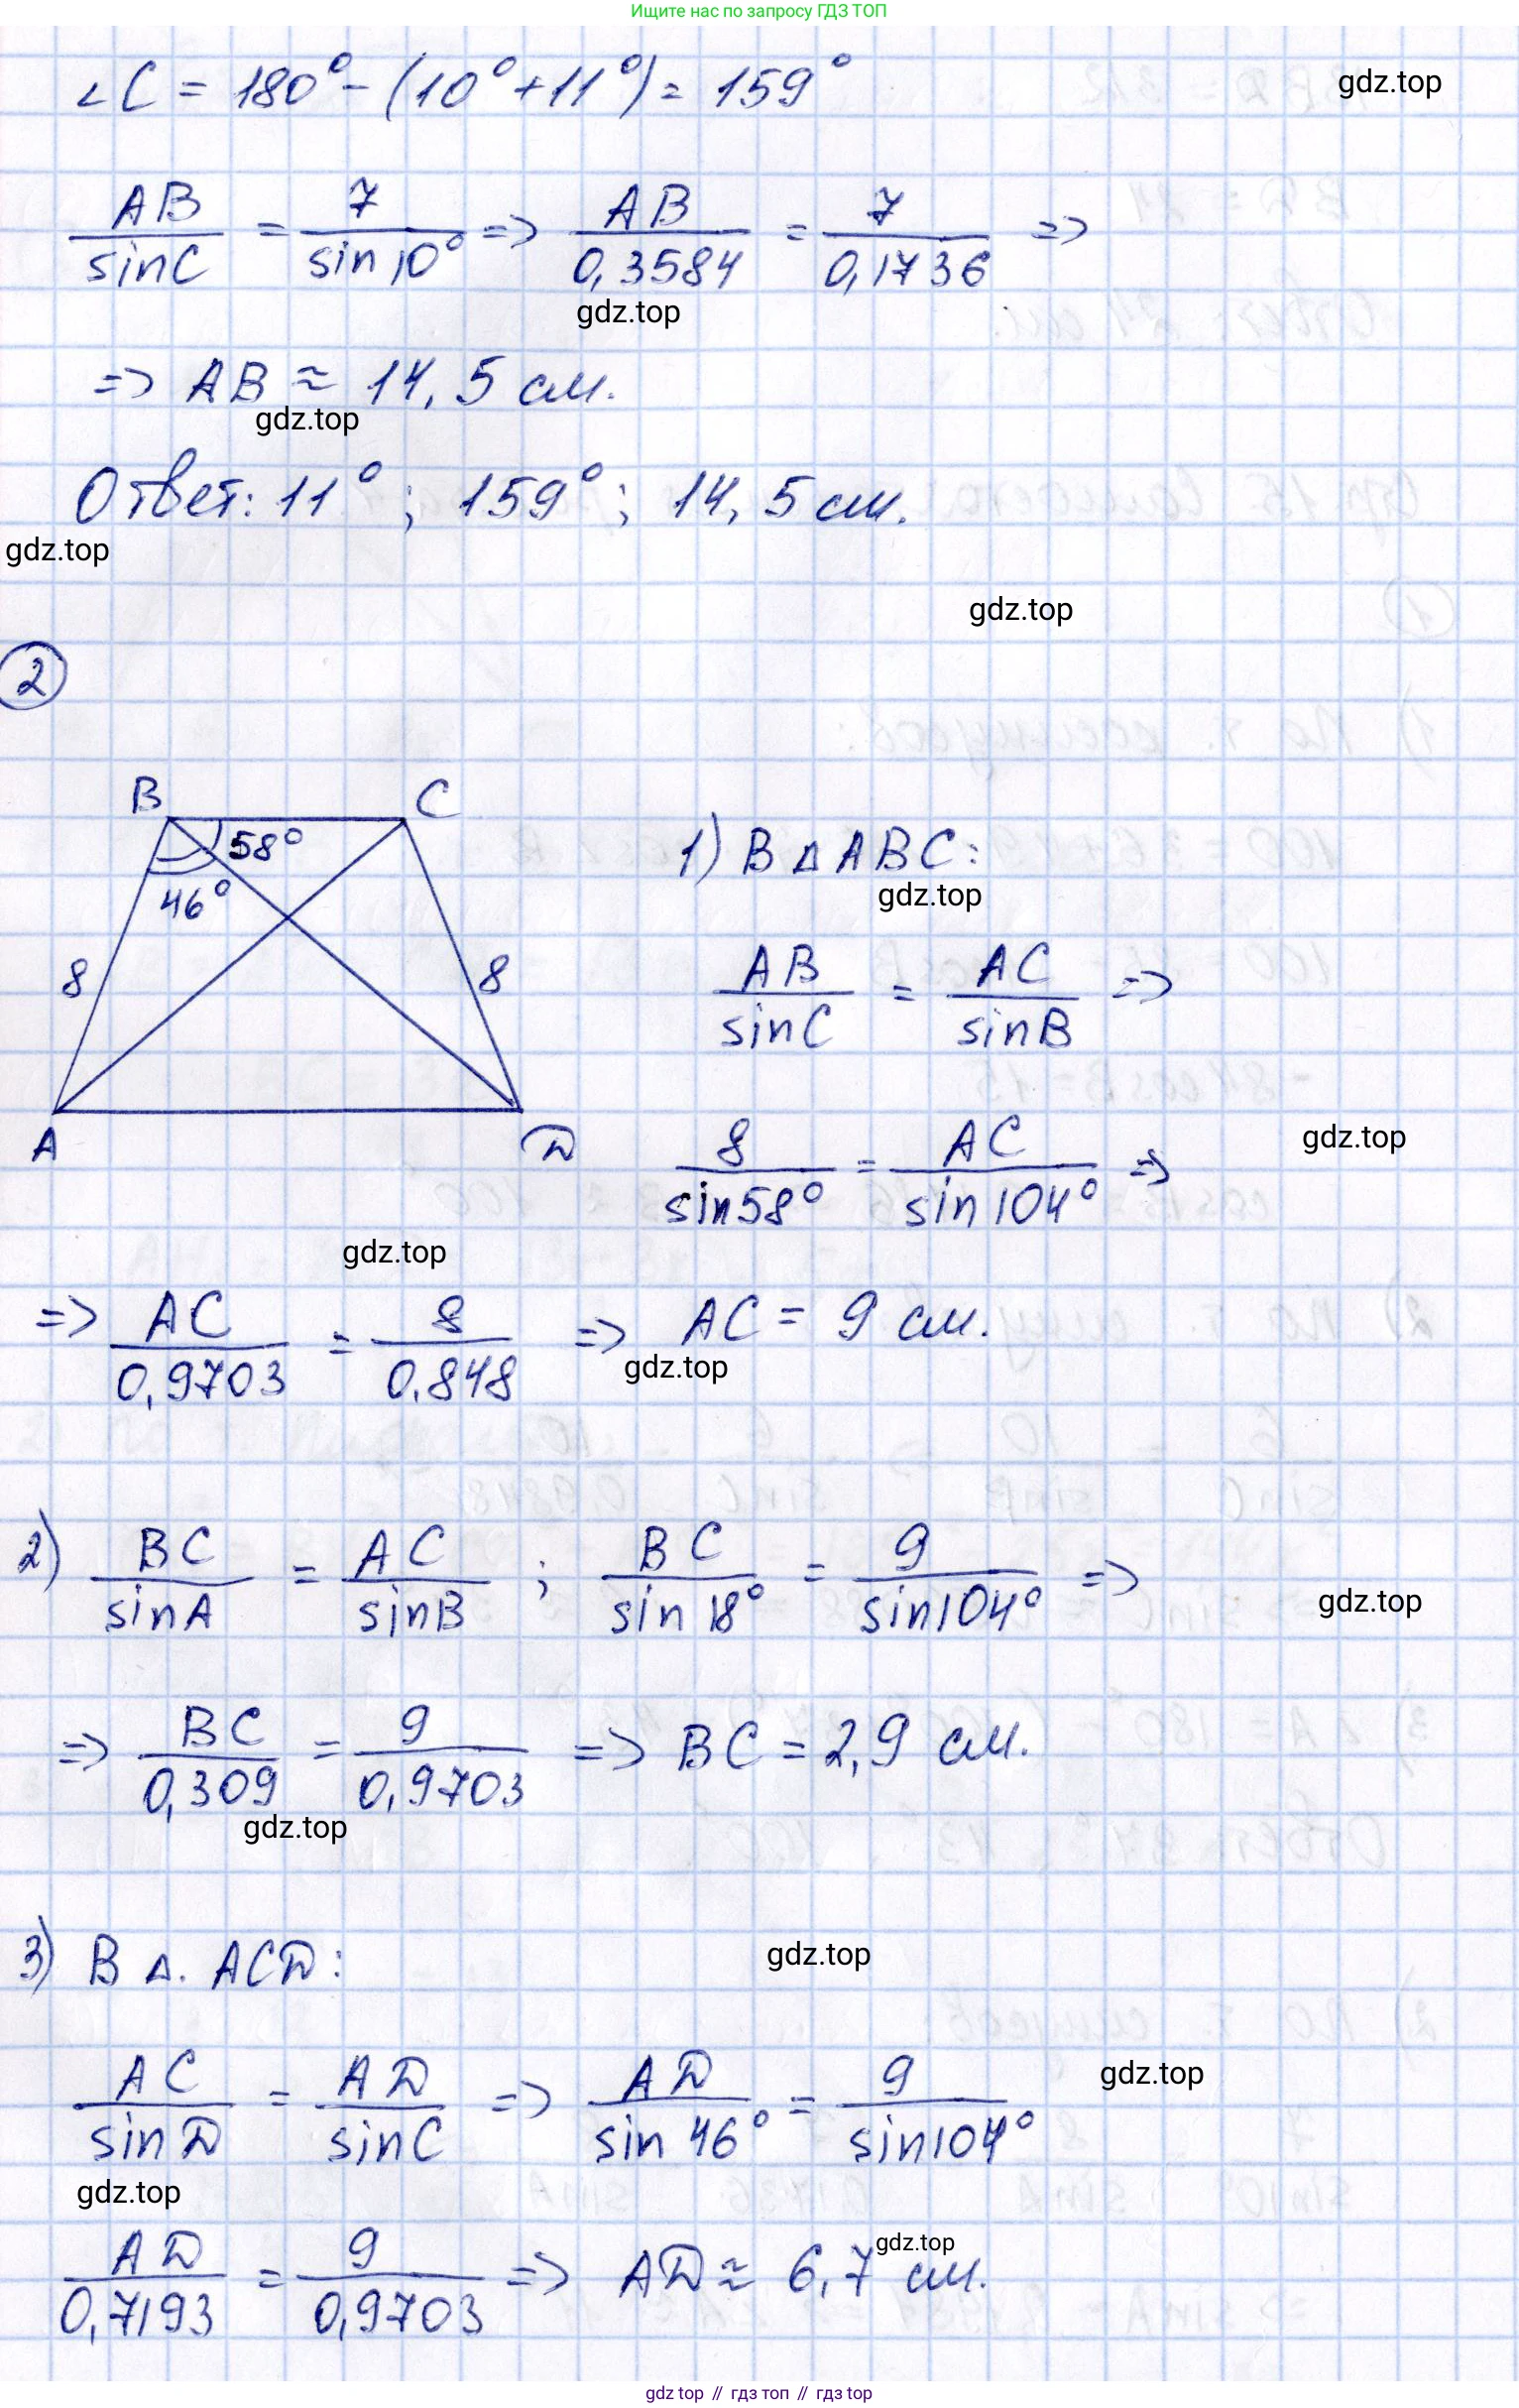 Ищите нас по запросу ГДЗ ТОП
∠C = 180° - (10° + 11°) = 159°
gdz.top
AB/sinC = 7/sin10° => AB/0,3584 = 7/0,1736 =>
gdz.top
=> AB ≈ 14,5 см.
gdz.top
Ответ: 11°; 159°; 14,5 см.
gdz.top
gdz.top
2
B C
58°
46°
8 8
A D
1) В ΔABC:
gdz.top
AB/sinC = AC/sinB =>
gdz.top
8/sin58° = AC/sin104° =>
gdz.top
=> AC/0,9703 = 8/0,848 => AC = 9 см.
gdz.top
2) BC/sinA = AC/sinB ; BC/sin18° = 9/sin104° =>
gdz.top
=> BC/0,309 = 9/0,9703 => BC = 2,9 см.
gdz.top
3) В Δ. ACD:
gdz.top
AC/sinD = AD/sinC => AD/sin46° = 9/sin104°
gdz.top
gdz.top
AD/0,7193 = 9/0,9703 => AD ≈ 6,7 см.
gdz.top
gdz top // гдз топ // гдз top